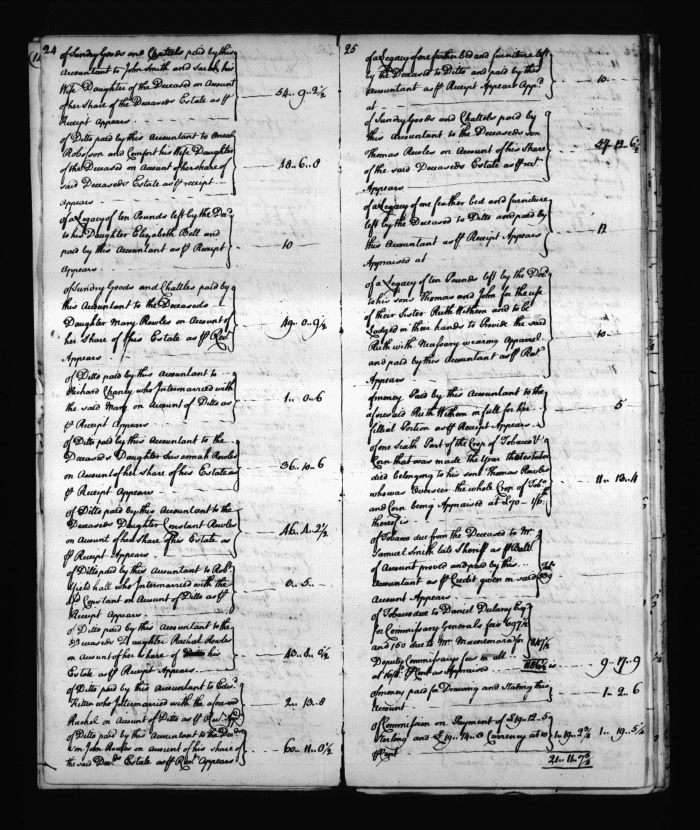 24
of Sundry Goods and Chattels paid by this
Accountant to John Smith and Sarah his
Wife Daughter of the Deceased on Account
of her share of the Deceaseds Estate as ⅌
Receipt Appears
54.. 9.. 2½
of Ditto paid by this Accountant to
Robosson and Comfort his Wife Daughter
of the Deceased on Account of her share of
said Deceaseds Estate as ⅌ receipt
Appears
48.. 6.. 8
of a Legacy of ten Pounds left by the Dec.d
to his Daughter Elizabeth Bell and
paid by this Accountant as ⅌ Receipt
Appears
10
of Sundry Goods and Chattles paid by
this Accountant to the Deceaseds
Daughter Mary Rowles on Account of
her Share of his Estate as ⅌ Rec.t
Appears
49.. 0.. 9½
of Ditto paid by this Accountant to
Richard Chaney who Intermarried with
the said Mary on Account of Ditto as
⅌ Receipt Appears
1.. 0.. 6
of Ditto paid by this Accountant to the
Deceaseds Daughter Susannah Rowles
on Account of her share of his Estate as
⅌ Receipt Appears
36.. 10.. 6
of Ditto paid by this Accountant to the
Deceaseds Daughter Constant Rowles
on Account of her share of his Estate as
⅌ Receipt Appears
46.. 4.. 2½
of Ditto paid by this Accountant to Rob.t
who Intermarried with the
s.d Constant on Account of Ditto as ⅌
Receipt Appears
0.. 5..
of Ditto paid by this Accountant to the
Deceaseds Daughter Rachel Rowles
on Account of her share of his
Estate as ⅌ Receipt Appears
of Ditto paid by this Accountant to
who Intermarried with the aforesaid
Rachel on Account of Ditto as ⅌ Rec.t App.s
2.. 13.. 8
of Ditto paid by this Accountant to the Deceds
son John Rowles on account of his share of
the said Dec.ds Estate as ⅌ Rec.t Appears
60.. 11.. 0½
25
of a Legacy of one feather bed and furniture left
by the Deceased to Ditto and paid by this
Accountant as ⅌ Receipt Appears App.d
at
10
of Sundry Goods and Chattels paid by
this Accountant to the Deceaseds son
Thomas Rowles on Account of his Share
of the said Deceaseds Estate as ⅌ rect
Appears
of a Legacy of one feather bed and furniture
left by the Deceased to Ditto and paid by
this Accountant as ⅌ Receipt Appears
Appraised at
of a Legacy of ten Pounds left by the Dec.d
to his sons Thomas and John for the use
of their Sister Ruth Withem and to be
Lodged in their hands to Provide the said
Ruth with Necessary wearing Apparel
and paid by this Accountant as ⅌ Rec.t
Appears
10
of money Paid by this Accountant to the
aforesaid Ruth Withem in full for her
filial Portion as ⅌ Receipt Appears
5
of one Sixth Part of the Crop of Tobacco &
Corn that was made the Year the testator
died belonging to his son Thomas Rowles
who was Overseer the whole Crop of Tob.o
and Corn being Appraised at £70-1/6
thereof is
11.. 13.. 4
of Tobacco due from the Deceased to Mr.
Samuel Smith late Sheriff as ⅌ Ball.
of Account proved and paid by this
Accountant as ⅌ Credit given in said
Account Appears
of Tobacco due to Daniel Dulany Esq
for Commissary Generals fees 697½
and 150 due to Mr. Macnemara for
Deputy Commissarys fees in all
as Appraised
847½
9.. 17.. 9
of money paid for Drawing and Stating this
Account
1.. 2.. 6
of Commission on Payment of £19.. 12.. 5
Sterling and £19.. 14.. 0 Currency at 10
⅌ Cent
1.. 19.. 5½
21.. 11.. 7¾